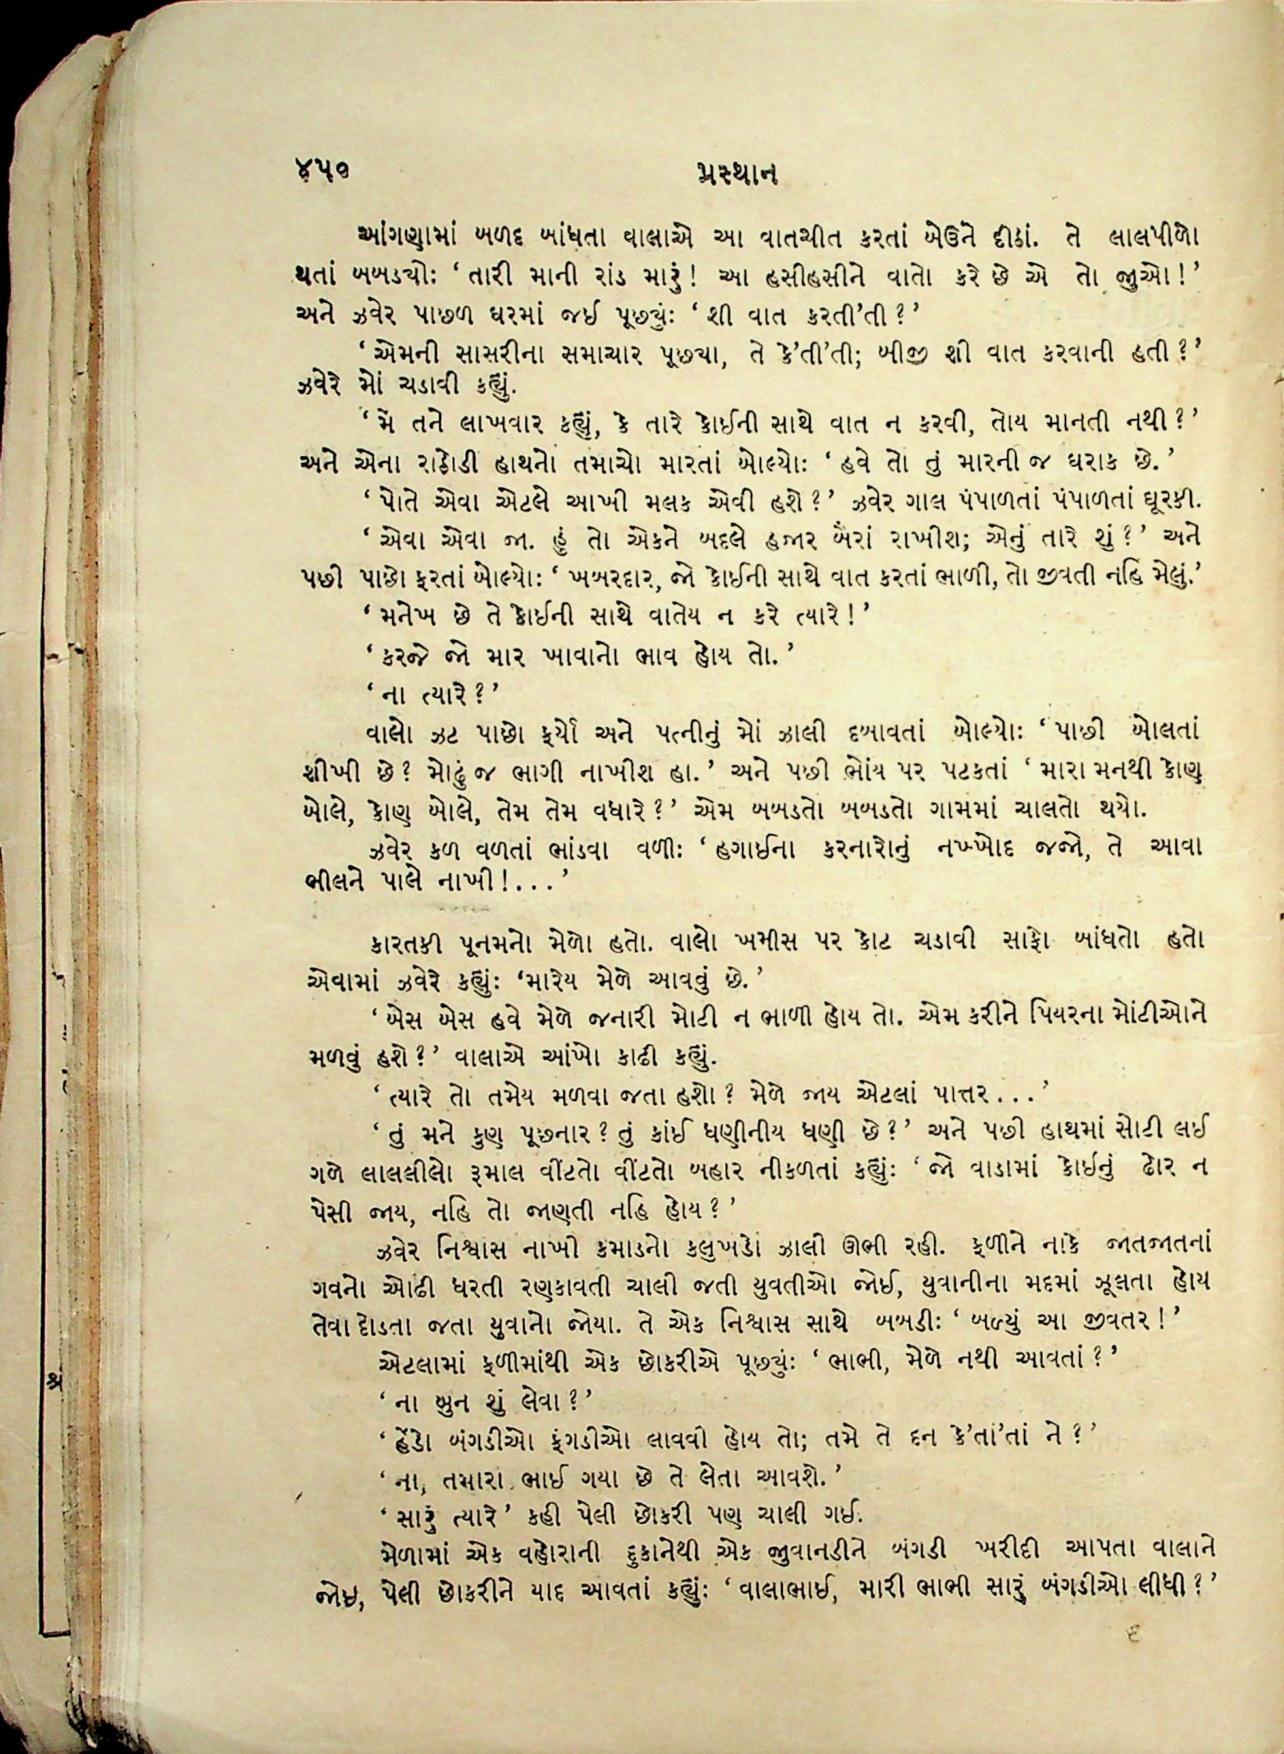 ૪૫૦ પ્રસ્થાન
આંગણામાં બળદ બાંધતા વાલાએ આ વાતચીત કરતાં બેઉને દીઠાં. તે લાલપીળો
થતાં બબડ્યોઃ ‘તારી માની રાંડ મારું! આ હસીહસીને વાતો કરે છે એ તો જુઓ!’
અને ઝવેર પાછળ ઘરમાં જઈ પૂછ્યુંઃ ‘શી વાત કરતી’તી?’
‘એમની સાસરીના સમાચાર પૂછ્યા, તે કે’તી’તી; બીજી શી વાત કરવાની હતી?’
ઝવેરે મોં ચડાવી કહ્યું.
‘મેં તને લાખવાર કહ્યું, કે તારે કોઈની સાથે વાત ન કરવી, તોય માનતી નથી?’
અને એના રાઠોડી હાથનો તમાચો મારતાં બોલ્યોઃ ‘હવે તો તું મારની જ ઘરાક છે.’
‘પોતે એવા એટલે આખી મલક એવી હશે?’ ઝવેર ગાલ પંપાળતાં પંપાળતાં ઘૂરકી.
‘એવા એવા જા. હું તો એકને બદલે હજાર બૈરાં રાખીશ; એનું તારે શું?’ અને
પછી પાછો ફરતાં બોલ્યોઃ ‘ખબરદાર, જો કોઈની સાથે વાત કરતાં ભાળી, તો જીવતી નહિ મેલું.’
‘મનેખ છે તે કોઈની સાથે વાતેય ન કરે ત્યારે!’
‘કરજે જો માર ખાવાનો ભાવ હોય તો.’
‘ના ત્યારે?’
વાલો ઝટ પાછો ફર્યો અને પત્નીનું મોં ઝાલી દબાવતાં બોલ્યોઃ ‘પાછી બોલતાં
શીખી છે? મોઢું જ ભાગી નાખીશ હા.’ અને પછી ભોંય પર પટકતાં ‘મારા મનથી કોણ
બોલે, કોણ બોલે, તેમ તેમ વધારે?’ એમ બબડતો બબડતો ગામમાં ચાલતો થયો.
ઝવેર કળ વળતાં ભાંડવા વળીઃ ‘હગાઈના કરનારોનું નખ્ખોદ જજો, તે આવા
ભીલને પાલે નાખી!...’
કારતકી પૂનમનો મેળો હતો. વાલો ખમીસ પર કોટ ચડાવી સાફો બાંધતો હતો
એવામાં ઝવેરે કહ્યુંઃ ‘મારેય મેળે આવવું છે.’
‘બેસ બેસ હવે મેળે જનારી મોટી ન ભાળી હોય તો. એમ કરીને પિયરના મોંટીઓને
મળવું હશે?’ વાલાએ આંખો કાઢી કહ્યું.
‘ત્યારે તો તમેય મળવા જતા હશો? મેળે જાય એટલાં પાત્તર...’
‘તું મને કુણ પૂછનાર? તું કાંઈ ધણીનીય ધણી છે?’ અને પછી હાથમાં સોટી લઈ
ગળે લાલલીલો રૂમાલ વીંટતો વીંટતો બહાર નીકળતાં કહ્યુંઃ ‘જો વાડામાં કોઈનું ઢોર ન
પેસી જાય, નહિ તો જાણતી નહિ હોય?’
ઝવેર નિશ્વાસ નાખી કમાડનો કલુખડો ઝાલી ઊભી રહી. ફળીને નાકે જાતજાતનાં
ગવનો ઓઢી ધરતી રણકાવતી ચાલી જતી યુવતીઓ જોઈ, યુવાનીના મદમાં ઝૂલતા હોય
તેવા દોડતા જતા યુવાનો જોયા. તે એક નિશ્વાસ સાથે બબડીઃ ‘બળ્યું આ જીવતર!’
એટલામાં ફળીમાંથી એક છોકરીએ પૂછ્યુંઃ ‘ભાભી, મેળે નથી આવતાં?’
‘ના બુન શું લેવા?’
‘હેંડો બંગડીઓ ફંગડીઓ લાવવી હોય તો; તમે તે દન કે’તાં’તાં ને?’
‘ના, તમારા ભાઈ ગયા છે તે લેતા આવશે.’
‘સારું ત્યારે’ કહી પેલી છોકરી પણ ચાલી ગઈ.
મેળામાં એક વહોરાની દુકાનેથી એક જુવાનડીને બંગડી ખરીદી આપતા વાલાને
જોઈ, પેલી છોકરીને યાદ આવતાં કહ્યુંઃ ‘વાલાભાઈ, મારી ભાભી સારું બંગડીઓ લીધી?’